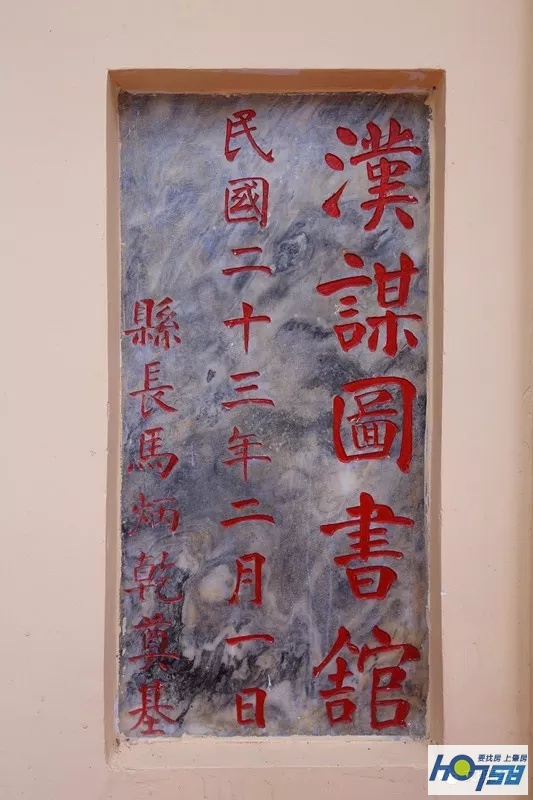 漢謀圖書舘
民國二十三年二月一日
縣長馬炳乾奠基
要找房 上肇房
HO758